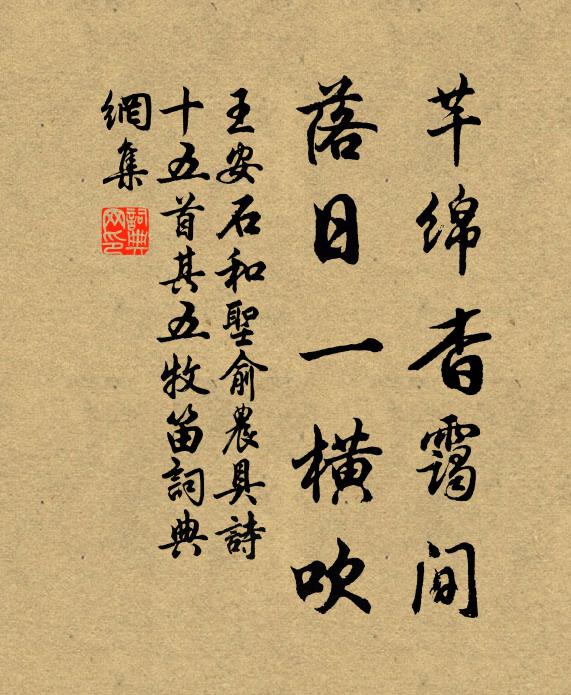 芊绵杳靄间
落日一横吹
王安石和聖俞農具詩
十五首其五牧笛詞典
網集
詞典
网印